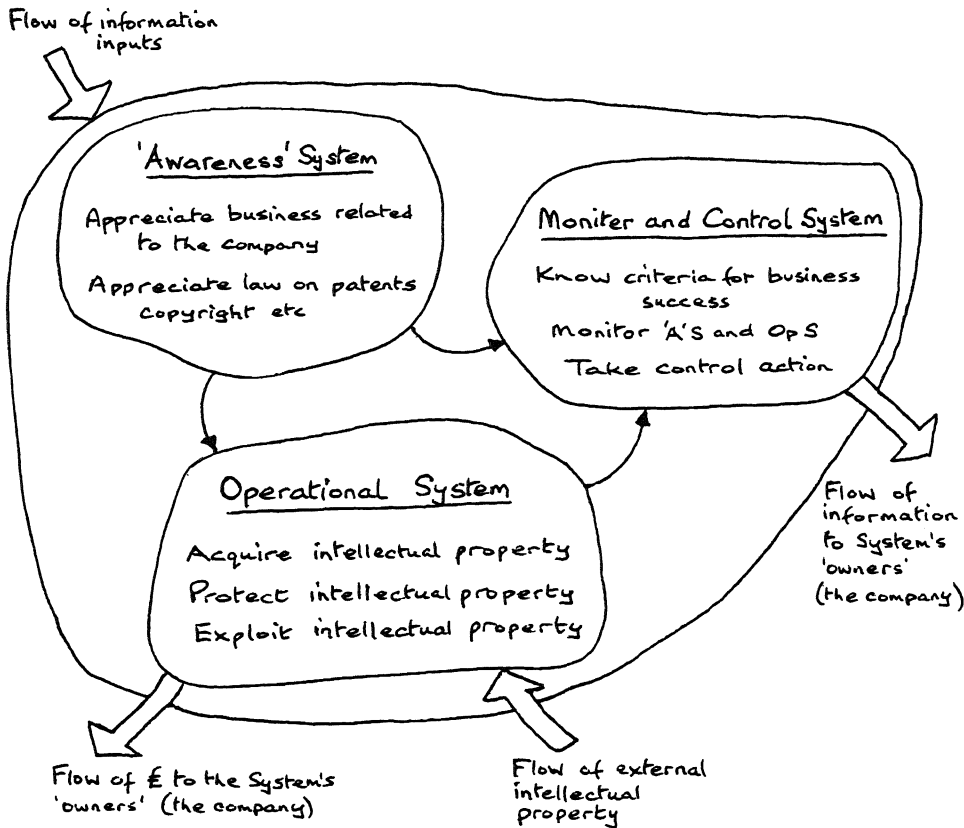 Flow of information
inputs
'Awareness' System
Appreciate business related
to the company
Appreciate law on patents
copyright etc
Moniter and Control System
Know criteria for business
success
Monitor 'A'S and OpS
Take control action
Operational System
Acquire intellectual property
Protect intellectual property
Exploit intellectual property
Flow of
information
to System's
'owners'
(the company)
Flow of £ to the System's
'owners' (the company)
Flow of external
intellectual
property